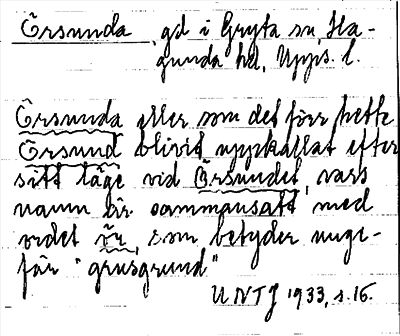 Örsunda gd i Gryta sn, Ha-
gunda hd, Upps. l.
Örsunda eller som det förr hette
Örsund blivit uppkallat efter
sitt läge vid Örsundet, vars
namn är sammansatt med
ordet ör, som betyder unge-
fär "grusgrund"
UNT J 1933, s. 16.